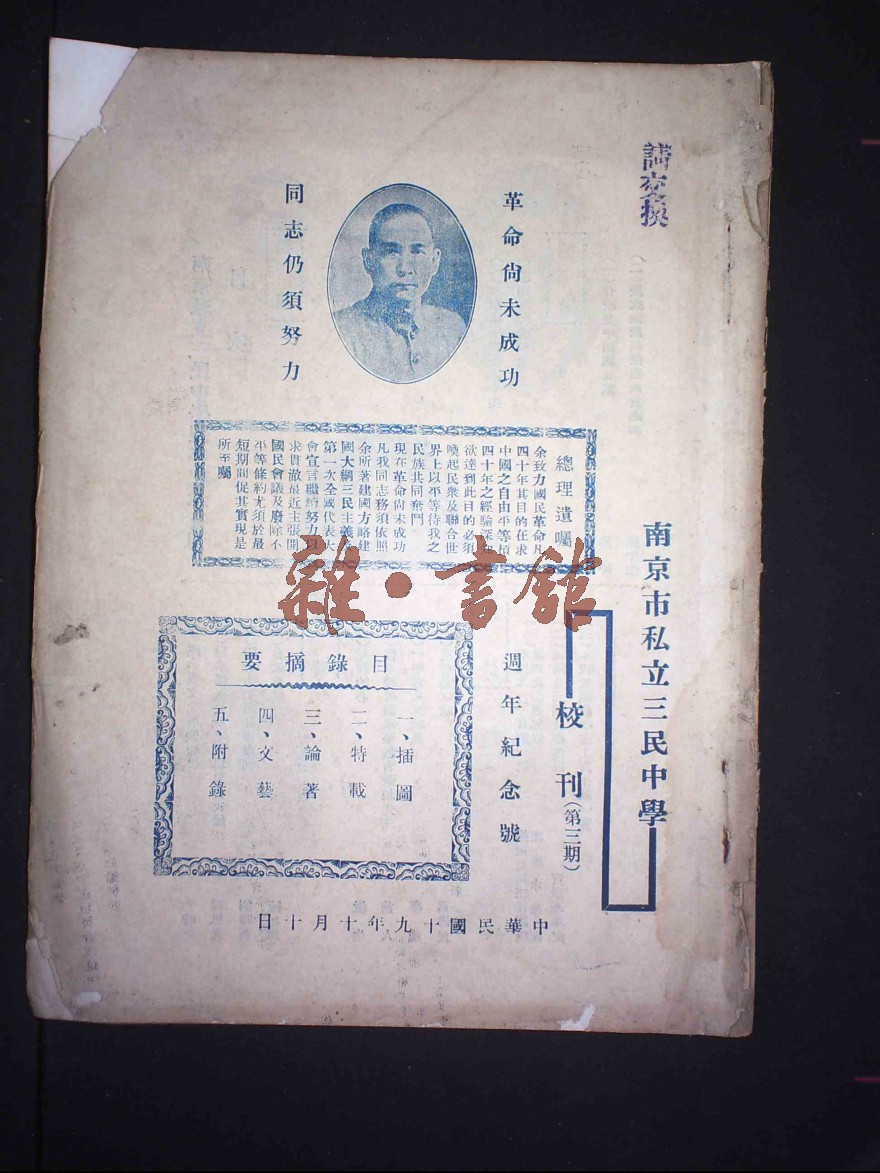 請交換
南京市私立三民中學
校刊（第三期）
週年紀念號
革命尙未成功
同志仍須努力
總理遺囑
余致力國民革命凡
四十年其目的在求
中國之自由平等積
四十年之經驗深知
欲達到此目的必須
喚起民衆及聯合世
界上以平等待我之
民族共同奮鬥
現在革命尙未成功
凡我同志務須依照
余所著建國方略建
國大綱三民主義及
第一次全國代表大
會宣言繼續努力以
求貫澈最近主張開
國民會議及廢除不
平等條約尤須於最
短期間促其實現是
所至囑
目錄摘要
一、插圖
二、特載
三、論著
四、文藝
五、附錄
中華民國十九年十月十日
雜·書館